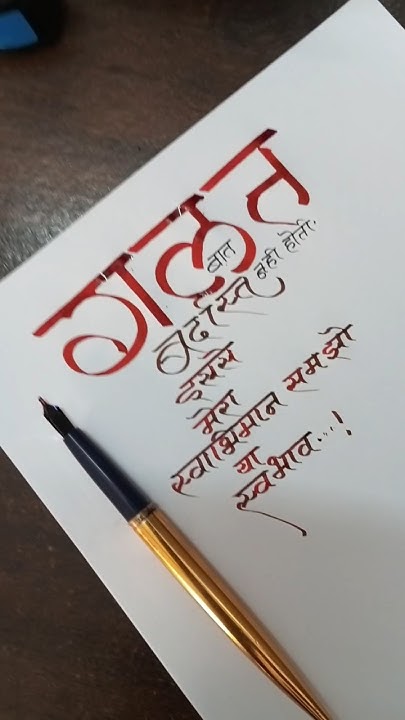 गलत
बात
बर्दाश्त नही होती.
इससे
मेरा
स्वाभिमान समझो
या
स्वभाव...!